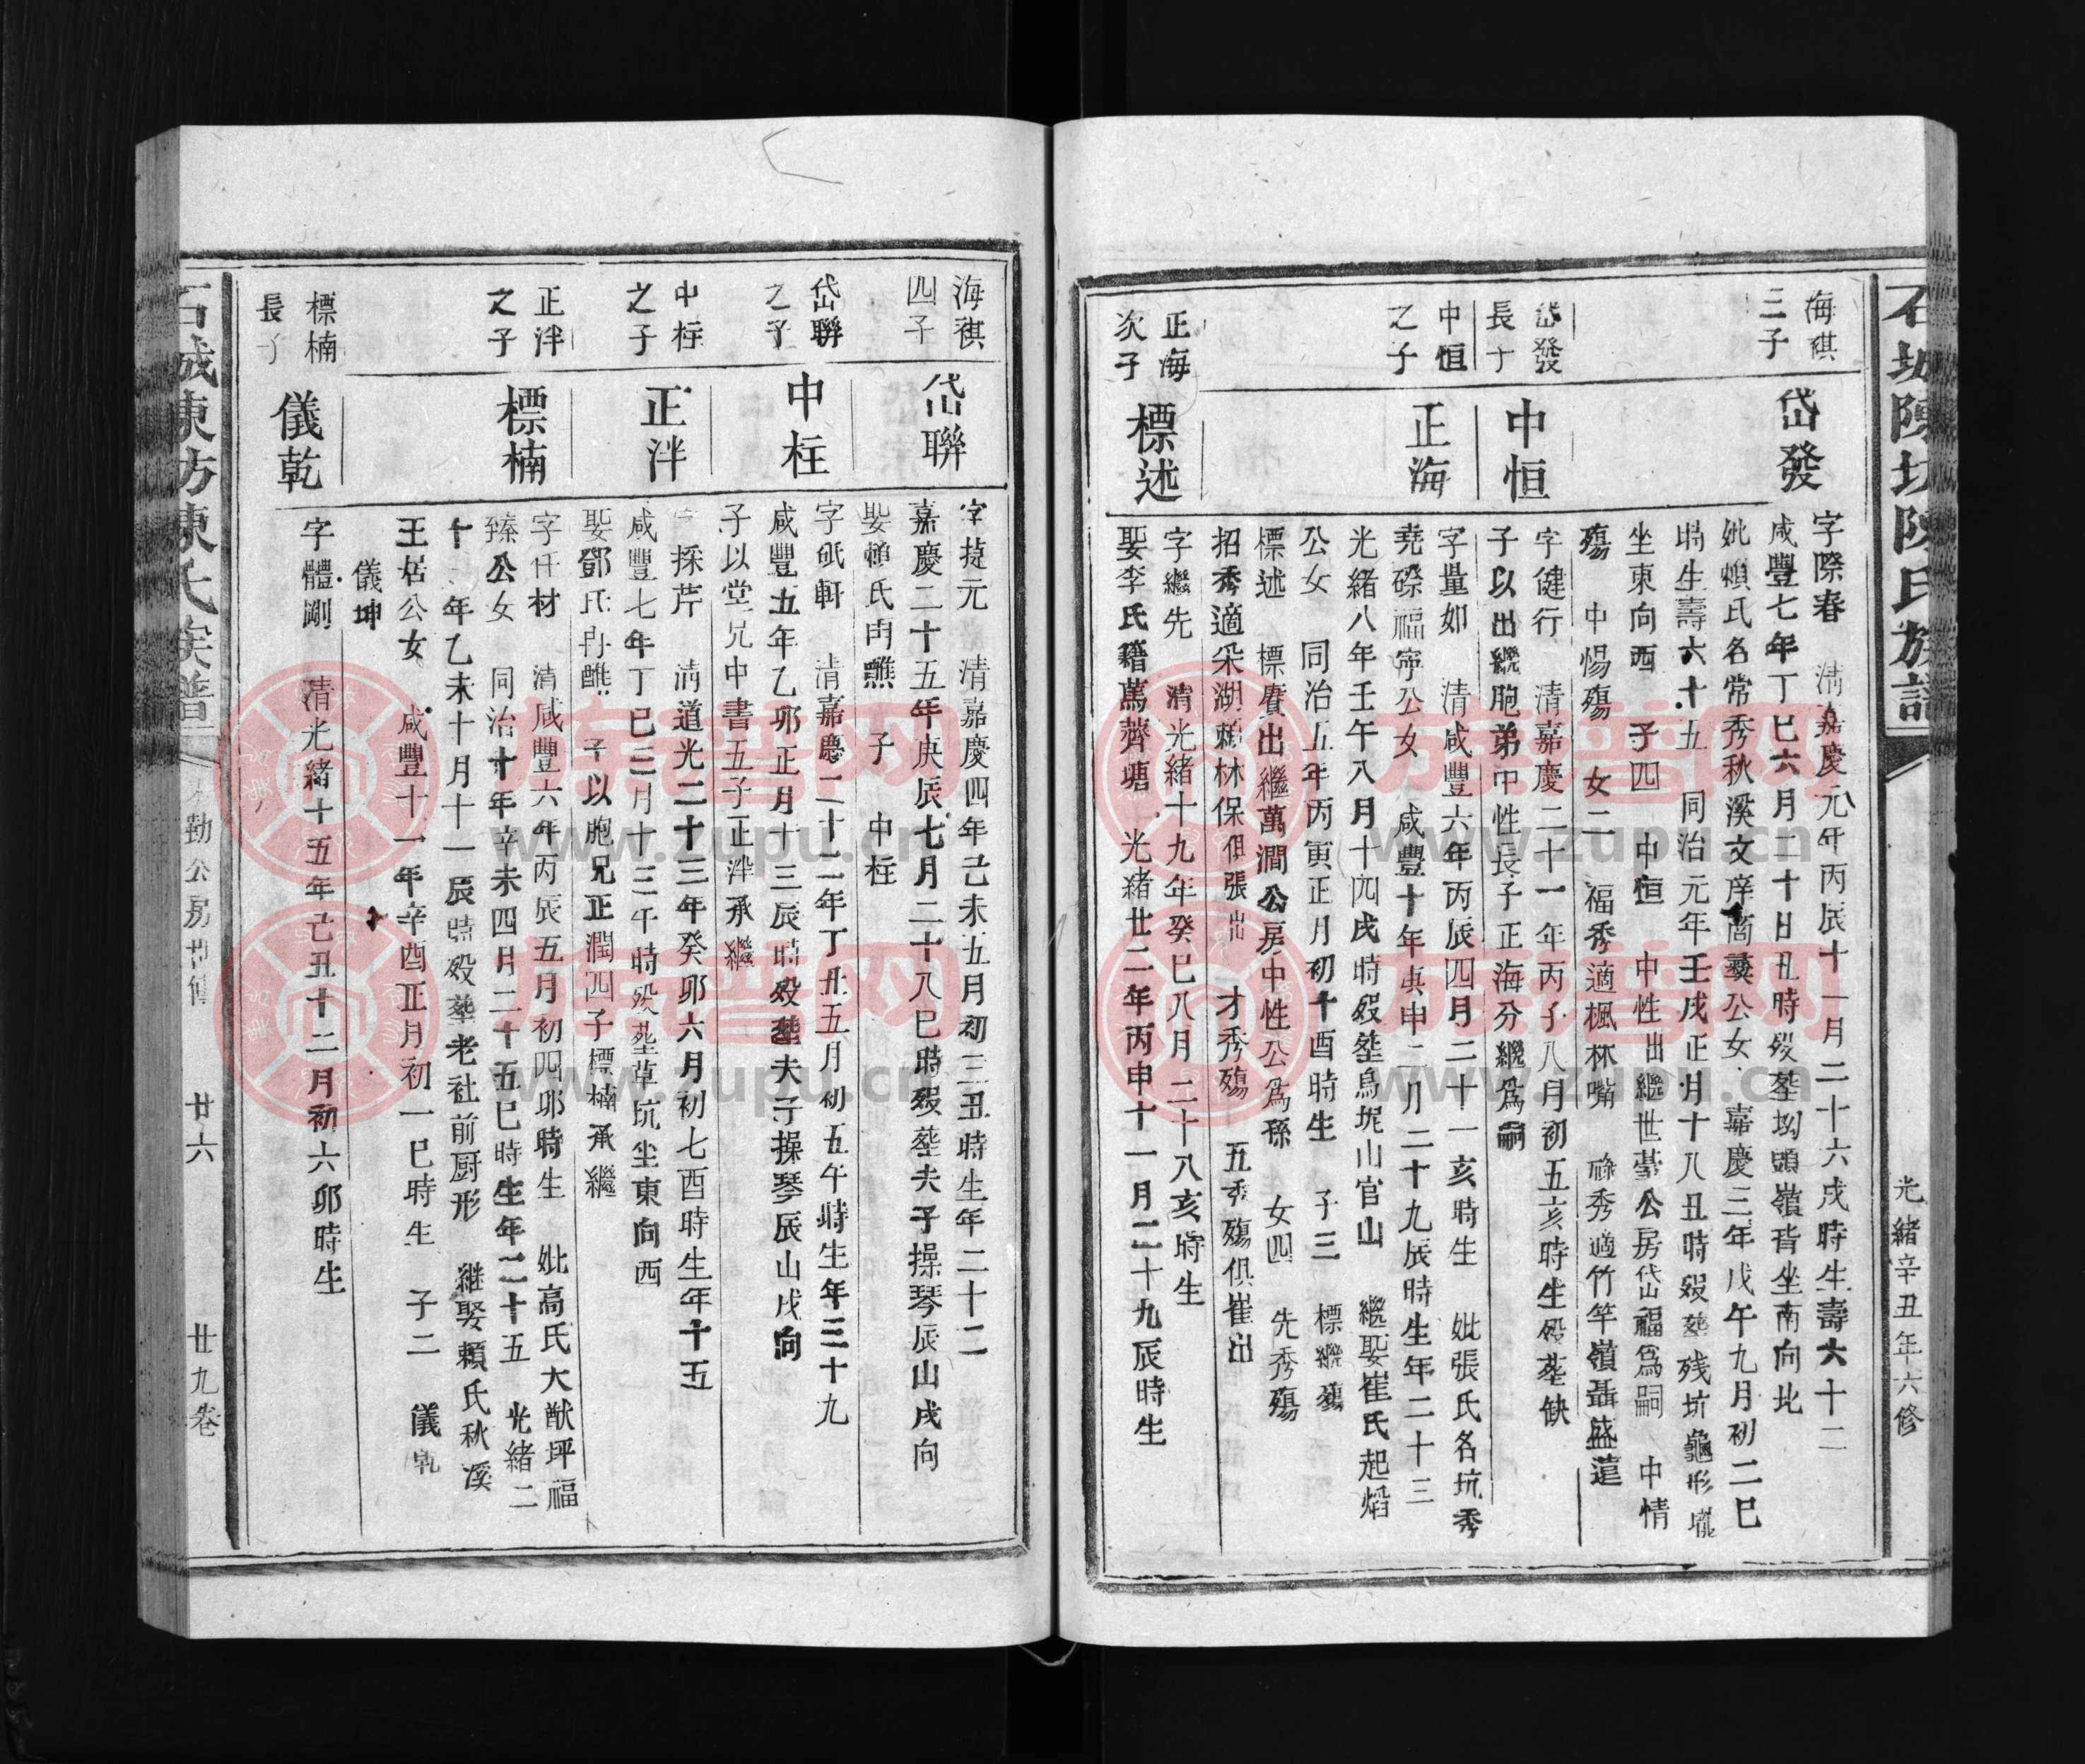 石城陳坊陳氏族譜
光緒辛丑年六修
海祺
三子
岱發
字際春 清嘉慶元年丙辰十一月二十六戌時生壽六十二
咸豐七年丁巳六月二十日丑時歿塟坳頭嶺背坐南向北
妣賴氏名常秀秋溪文庠啇蘷公女 嘉慶三年戊午九月初二巳
時生壽六十五 同治元年壬戌正月十八丑時歿塟残坑龜形壠
坐東向西 子四 中恒 中性出繼世臺公房岱福爲嗣 中情
殤 中惕殤 女二 福秀適楓林嘴 祿秀適竹竿嶺聶盛遠
岱發
長子
中恒
字健行 清嘉慶二十一年丙子八月初五亥時生歿塟缺
子以出繼胞弟中性長子正海分繼爲嗣
中恒
之子
正海
字量如 清咸豐六年丙辰四月二十一亥時生 妣張氏名坑秀
堯磜福寧公女 咸豐十年庚申二月二十九辰時生年二十三
光緒八年壬午八月十四戌時歿塟烏坭山官山 繼娶崔氏起焰
公女 同治五年丙寅正月初十酉時生 子三 標繼殤
標述 標賡出繼萬澗公房中性公爲孫 女四 先秀殤
招秀適朵湖賴林保俱張出 才秀殤 五秀殤俱崔出
正海
次子
標述
字繼先 清光緒十九年癸巳八月二十八亥時生
娶李氏籍萬薺塘 光緒廿二年丙申十一月二十九辰時生
海祺
四子
岱聯
字捷元 清嘉慶四年己未五月初三丑時生年二十二
嘉慶二十五年庚辰七月二十八巳時歿塟夫子操琴辰山戌向
娶賴氏冉醮 子 中柱
岱聯
之子
中柱
字砥軒 清嘉慶二十二年丁丑五月初五午時生年三十九
咸豐五年乙卯正月十三辰時歿塟夫子操琴辰山戌向
子以堂兄中書五子正泮承繼
中柱
之子
正泮
字採芹 清道光二十三年癸卯六月初七酉時生年十五
咸豐七年丁巳三月十三午時歿塟草坑坐東向西
娶鄧氏冉醮 子以胞兄正潤四子標楠承繼
正泮
之子
標楠
字仟材 清咸豐六年丙辰五月初四卯時生 妣高氏大猷坪福
臻公女 同治十年辛未四月二十五巳時生年二十五 光緒二
十一年乙未十月十一辰時歿塟老社前厨形 繼娶賴氏秋溪
王居公女 咸豐十一年辛酉正月初一巳時生 子二 儀乾
儀坤
標楠
長子
儀乾
字體剛 清光緒十五年己丑十二月初六卯時生
石城陳坊陳氏族譜
勤公房
廿六
廿九卷
族譜网
www.zupu.cn
族譜网
www.zupu.cn
族譜网
www.zupu.cn
族譜网
www.zupu.cn